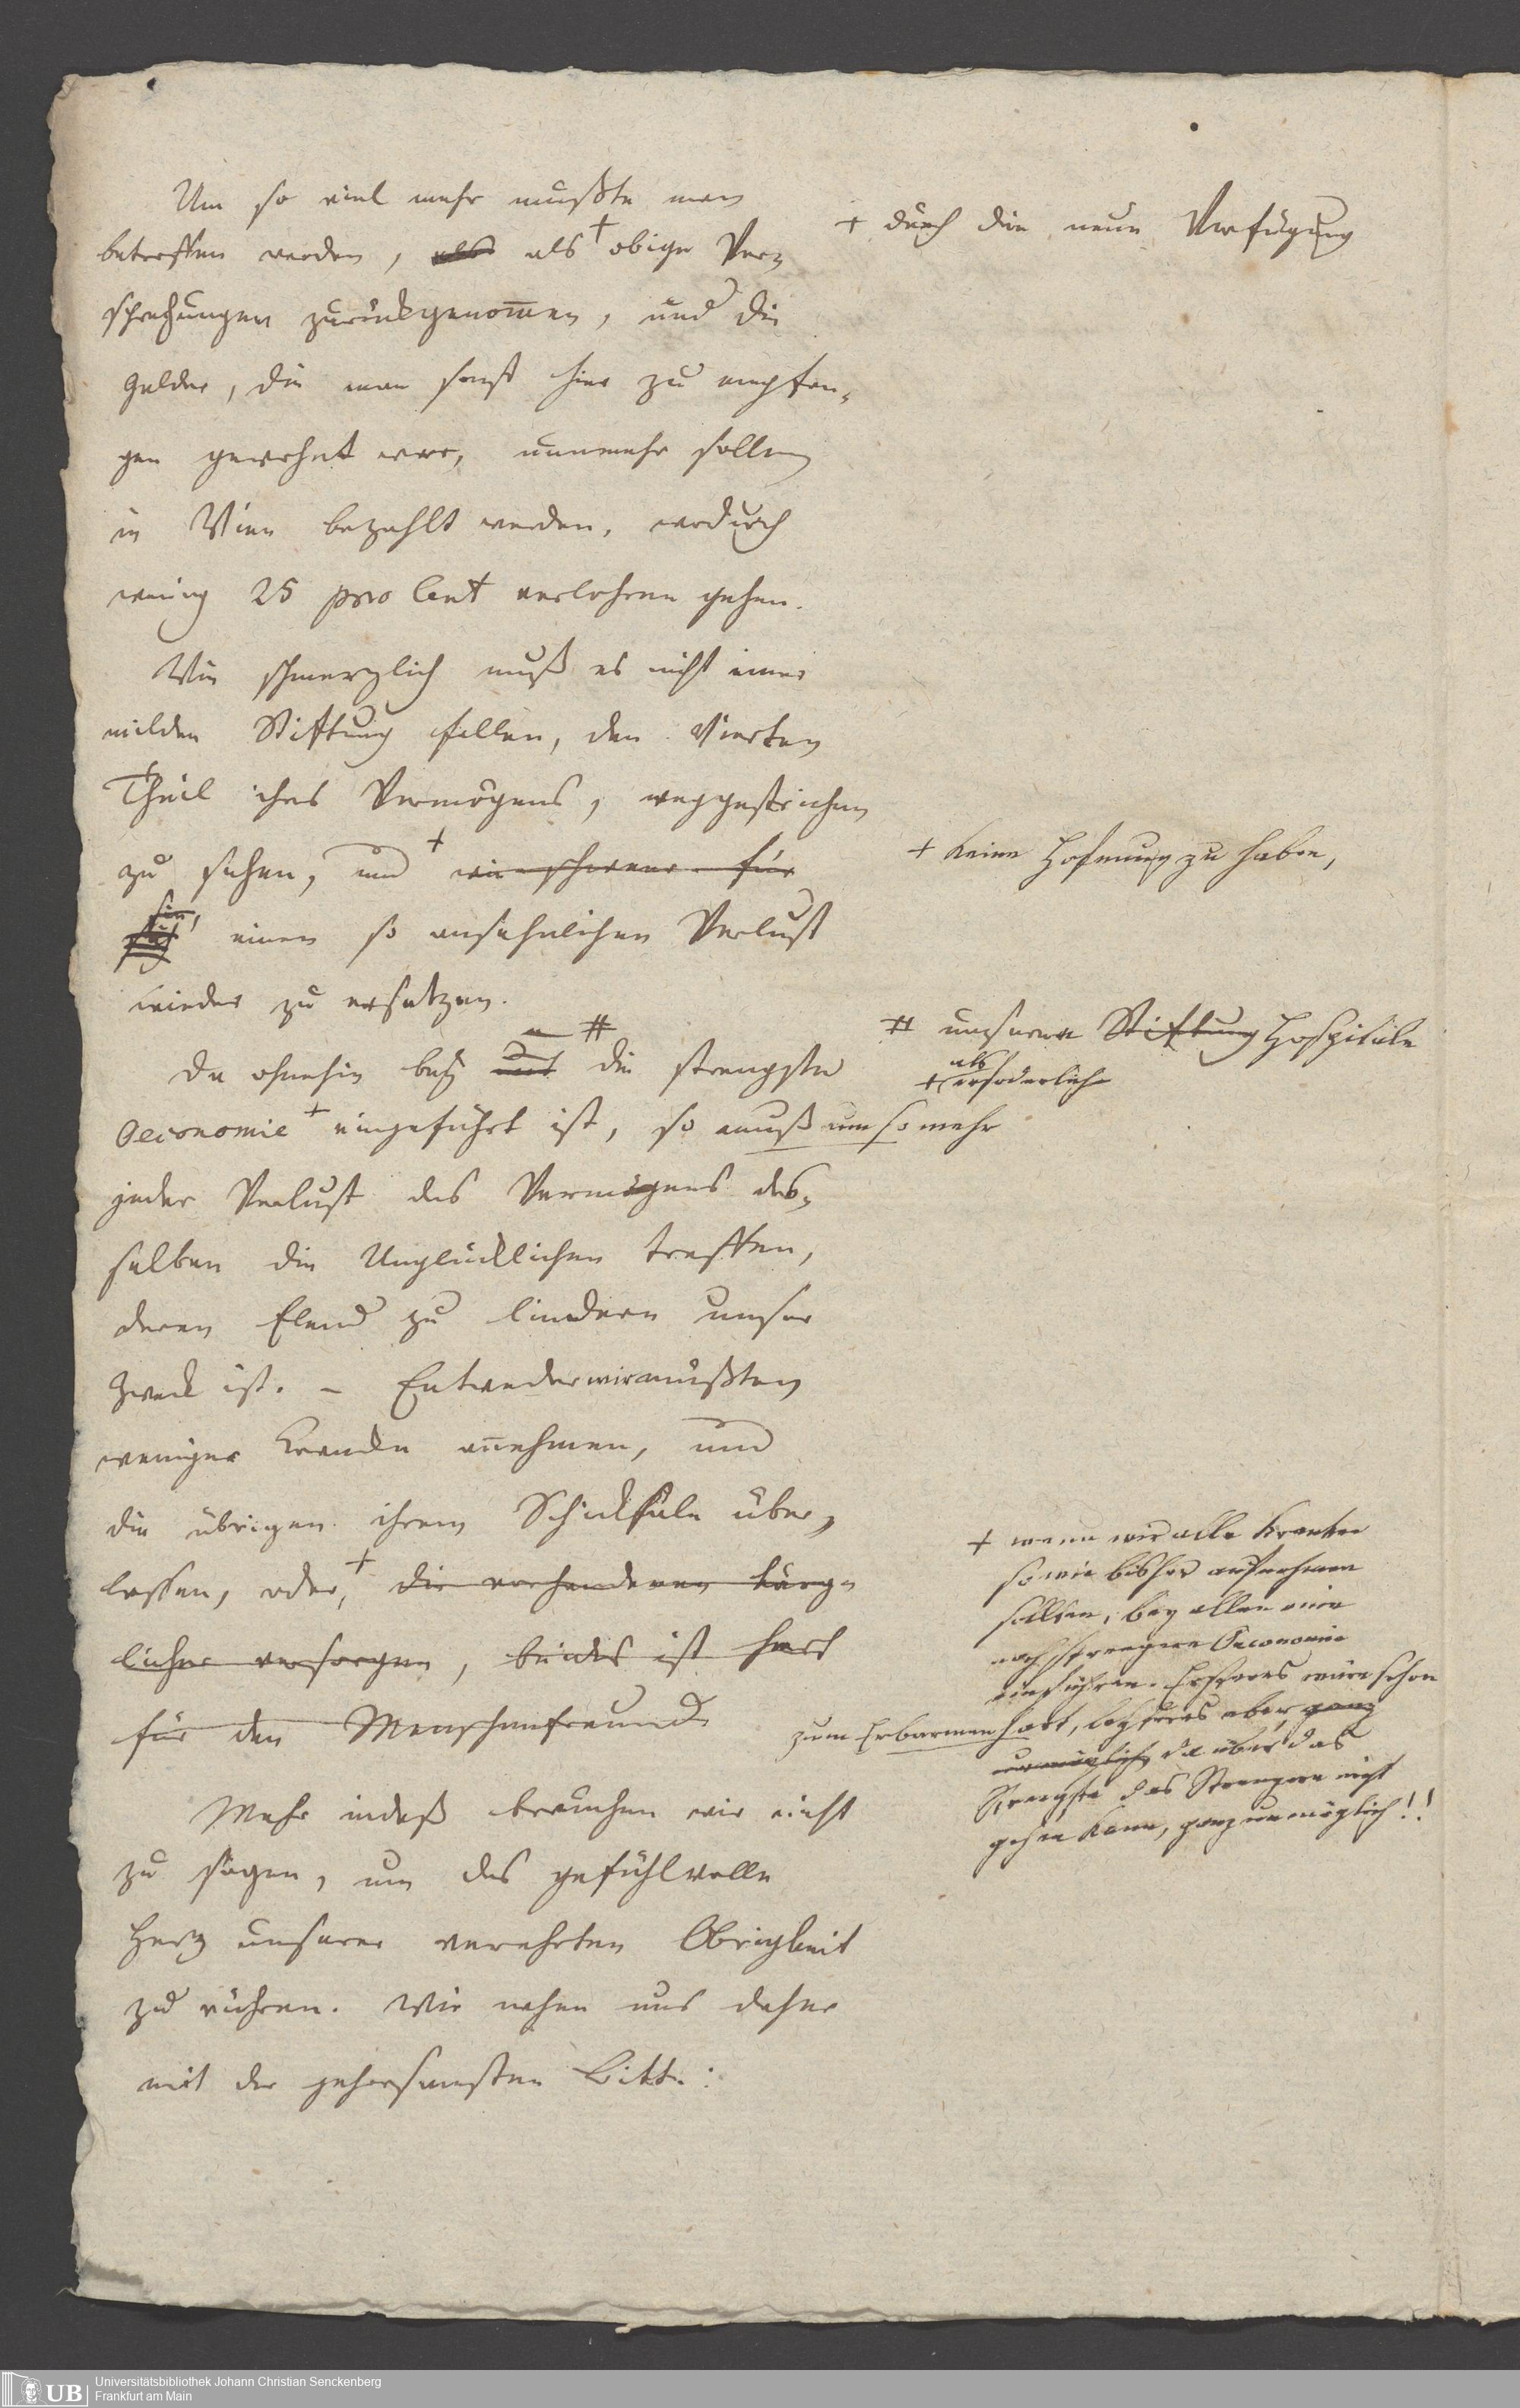 Um so viel mehr mußte man
betroffen werden, als als + obige Ver-
sprechungen zurückgenommen, und die
Gelder, die man sonst hier zu empfan-
gen gewohnt war, nunmehr sollen
in Wien bezahlt werden, wodurch
wenig 25 pro Cent verlohren gehen.
Wie schmerzlich muß es nicht einer
milden Stiftung fallen, den Vierten
Theil ihres Vermögens, weggestrichen
zu sehen, und + wie schwer für
sie, einen so ansehnlichen Verlust
wieder zu ersetzen.
Da ohnehin bey # die strengste
Oeconomie + eingeführt ist, so muß um so mehr
jeder Verlust des Vermögens des-
selben die Unglücklichen treffen,
deren Elend zu lindern unser
Zweck ist. – Entweder wir müßten
weniger Krancke annehmen, und
die übrigen ihrem Schicksale über-
lassen, oder, + die vorhandenen kärg-
licher versorgen, beides ist hart
für den Menschenfreund
Mehr indeß brauchen wir nicht
zu sagen, um das gefühlvolle
Herz unserer verehrten Obrigkeit
zu rühren. Wir nahen uns daher
mit der gehorsamsten Bitte:
+ durch die neue Verfügung
+ keine Hofnung zu haben,
# unserm Stiftung Hospitale
als
+ erforderlich
+ wenn wir alle Kranken
so wie bisher aufnehmen
sollten, bey allen eine
noch strengere Oeconomie
einführen. Ersteres wäre schon
zum Erbarmen hart, lezteres aber ganz
unmöglich, da über das
Strengste das Strengere nicht
gehen kann, ganz unmöglich!!
UB
Universitätsbibliothek Johann Christian Senckenberg
Frankfurt am Main